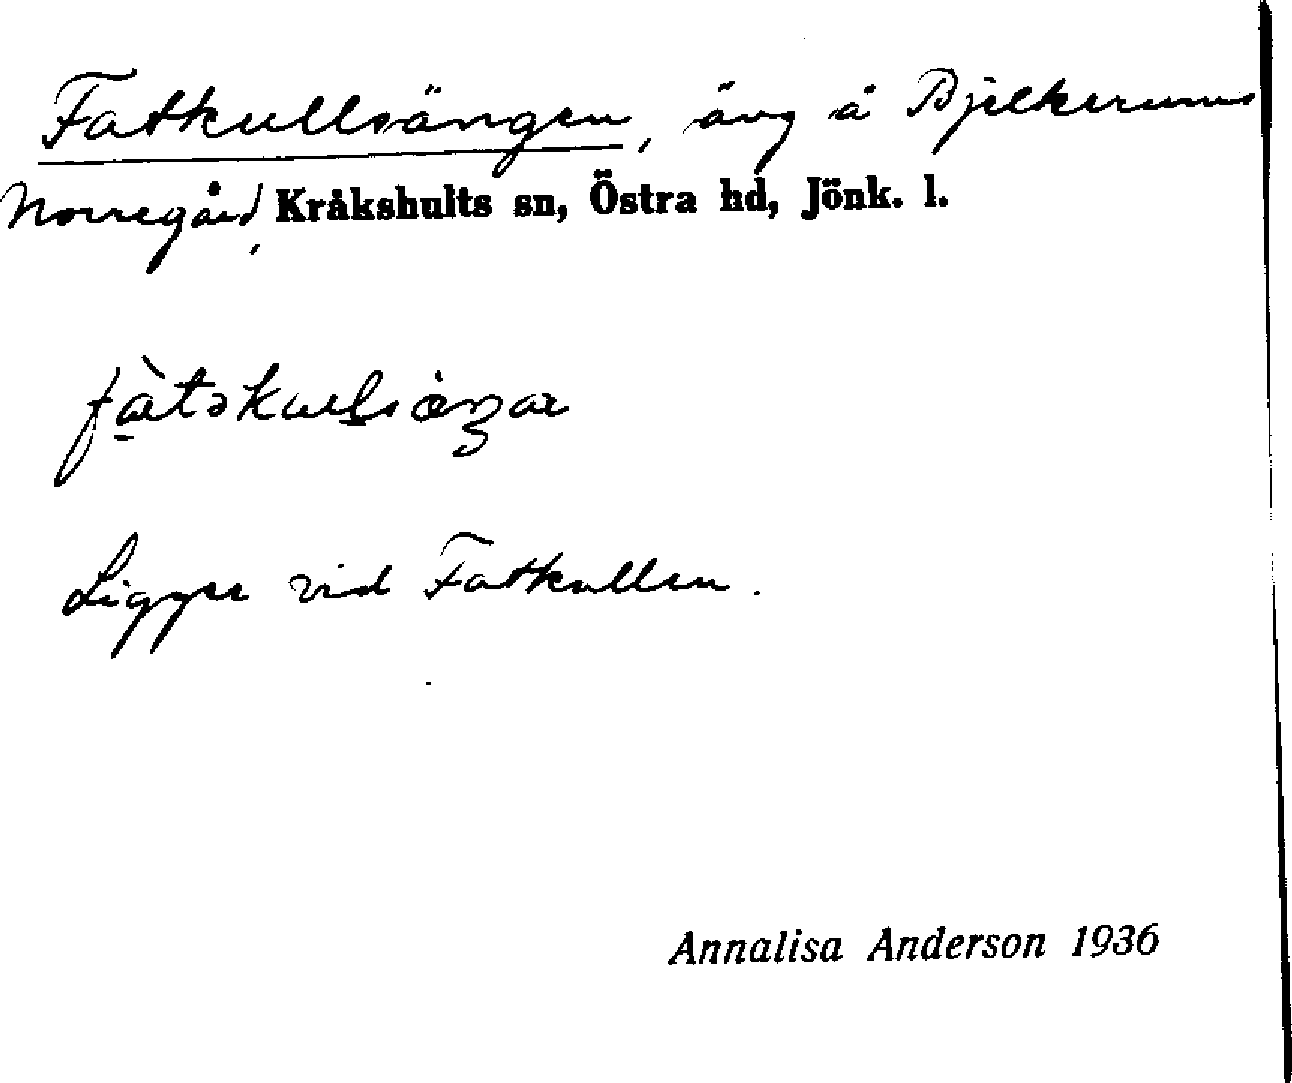 Fatkullsängen, äng å Bjelkerums
Norregård, Kråkshults sn, Östra hd, Jönk. l.
Ligger vid Fatkullen.
Annalisa Anderson 1936